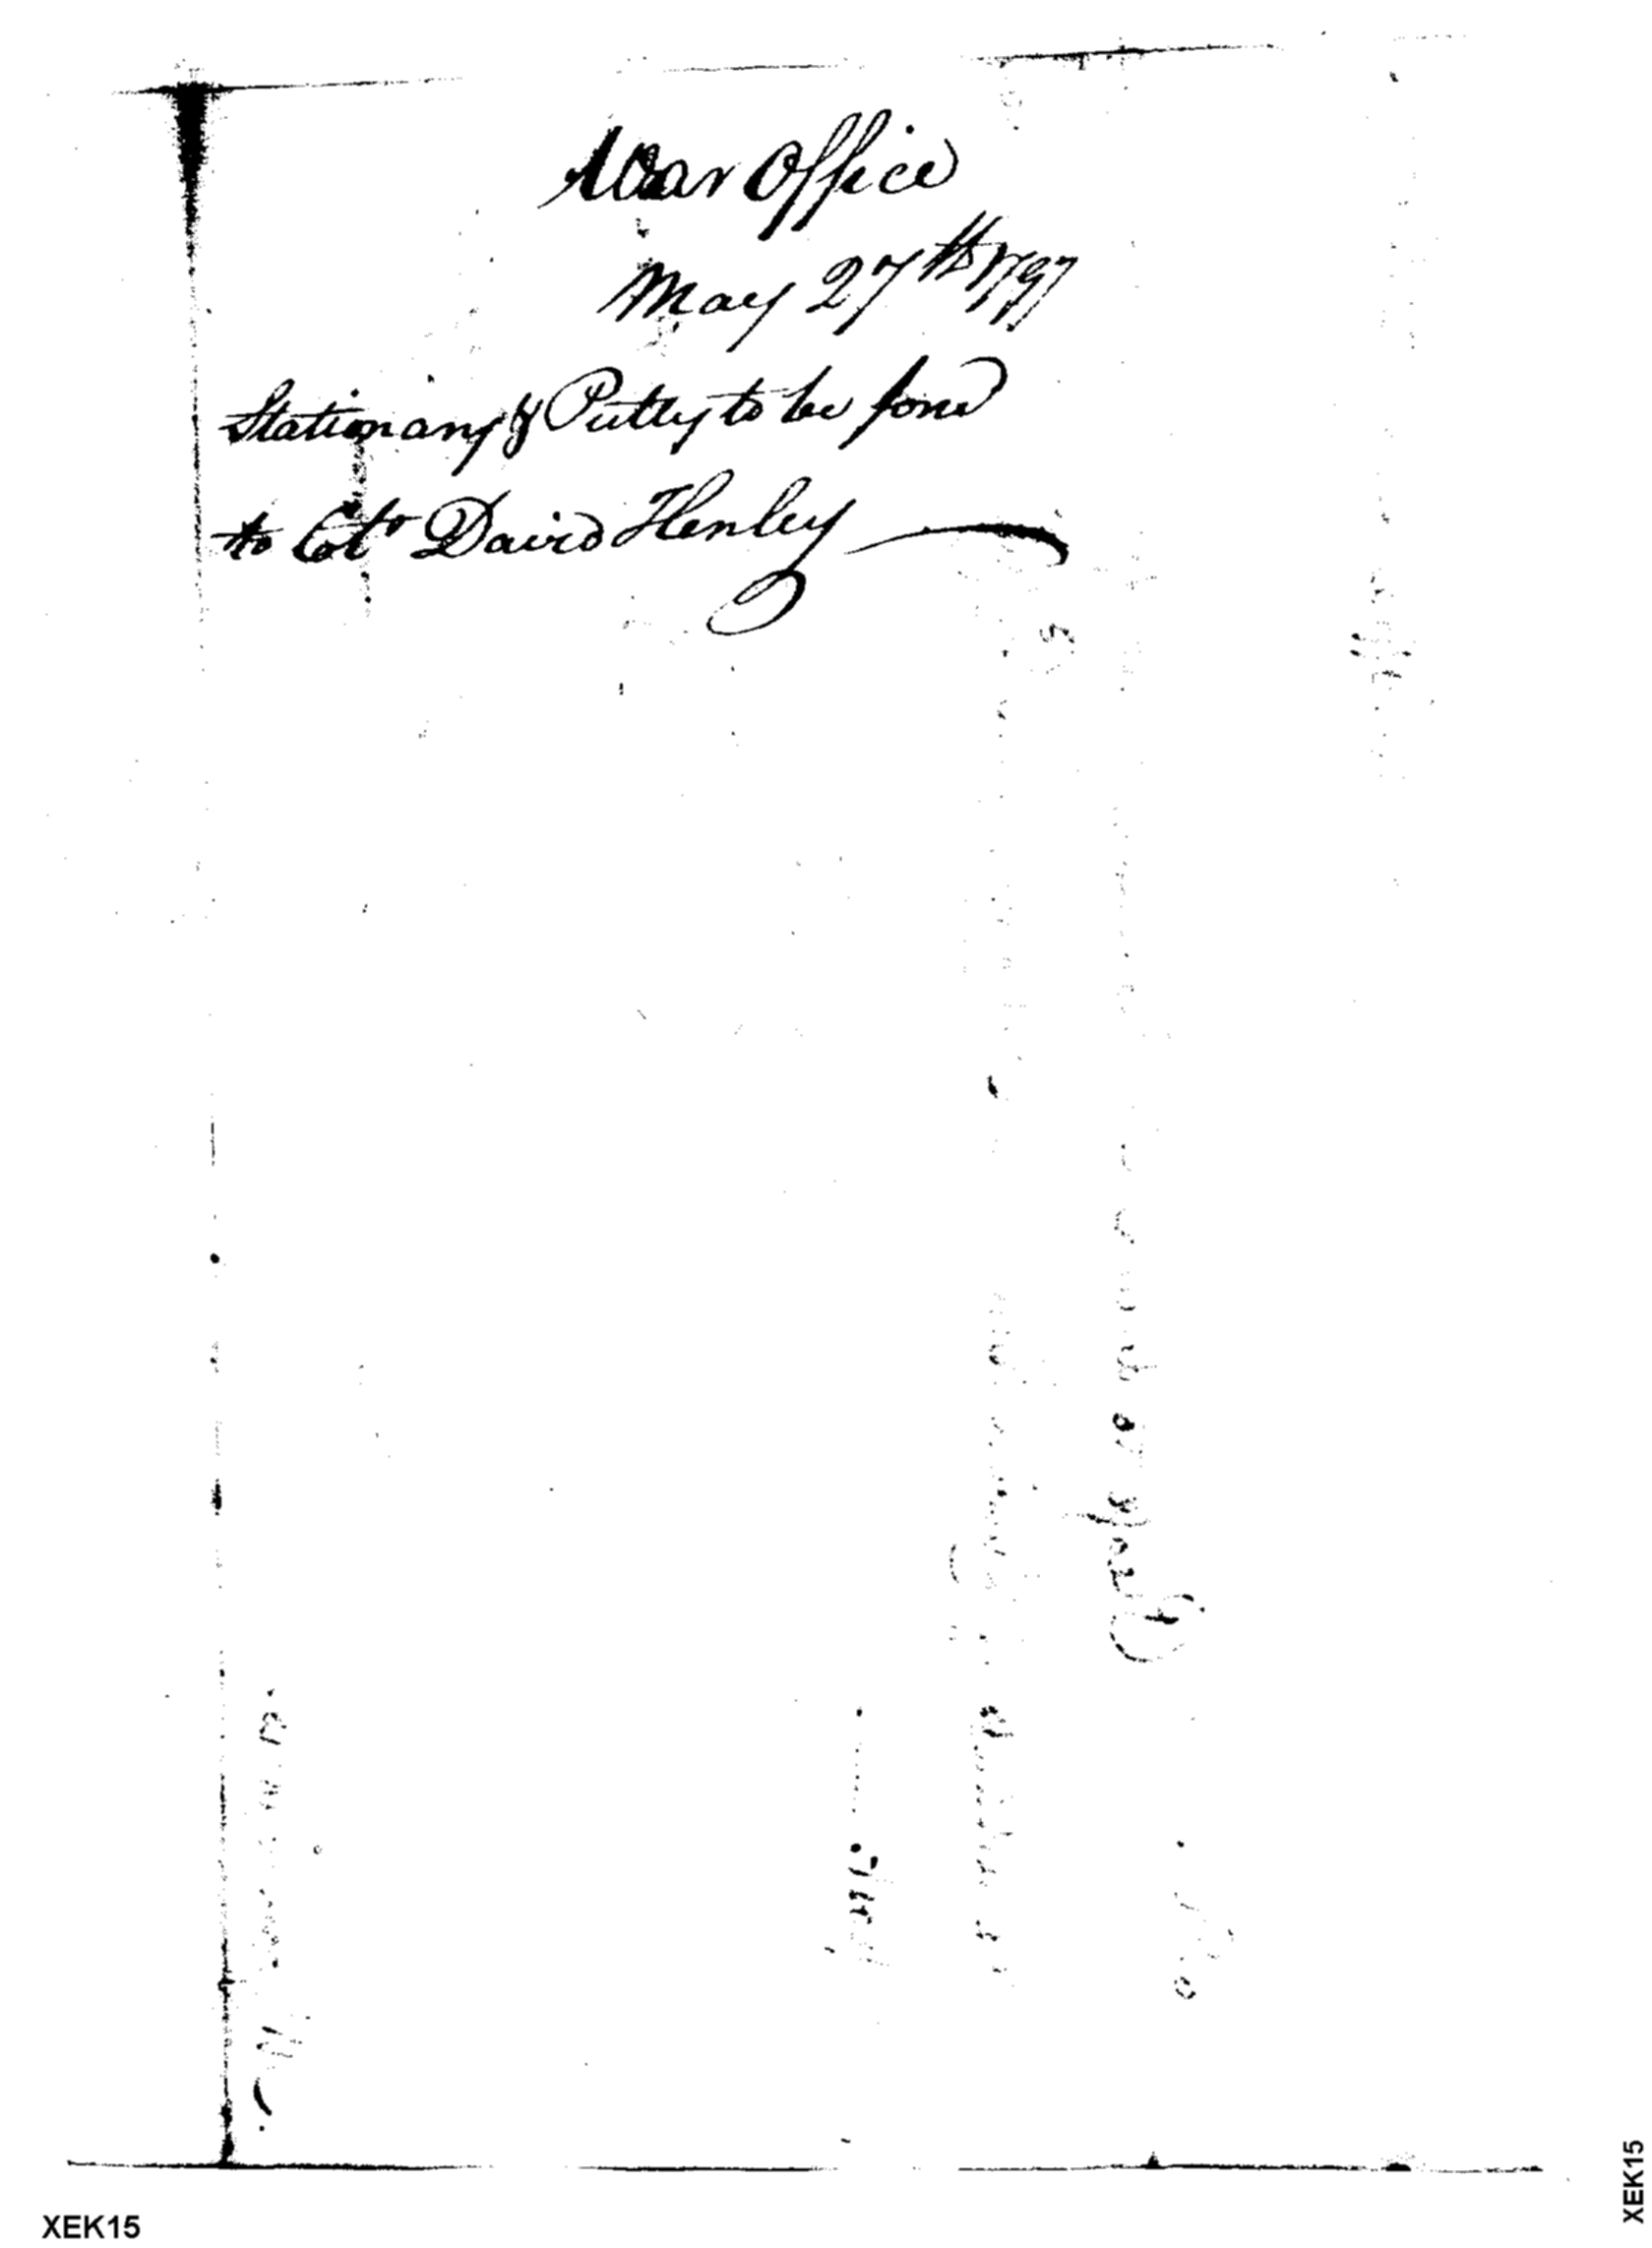 War Office
May 27th 1797
Stationary & Putty to be forwd
to Colo David Henley
XEK15
XEK15